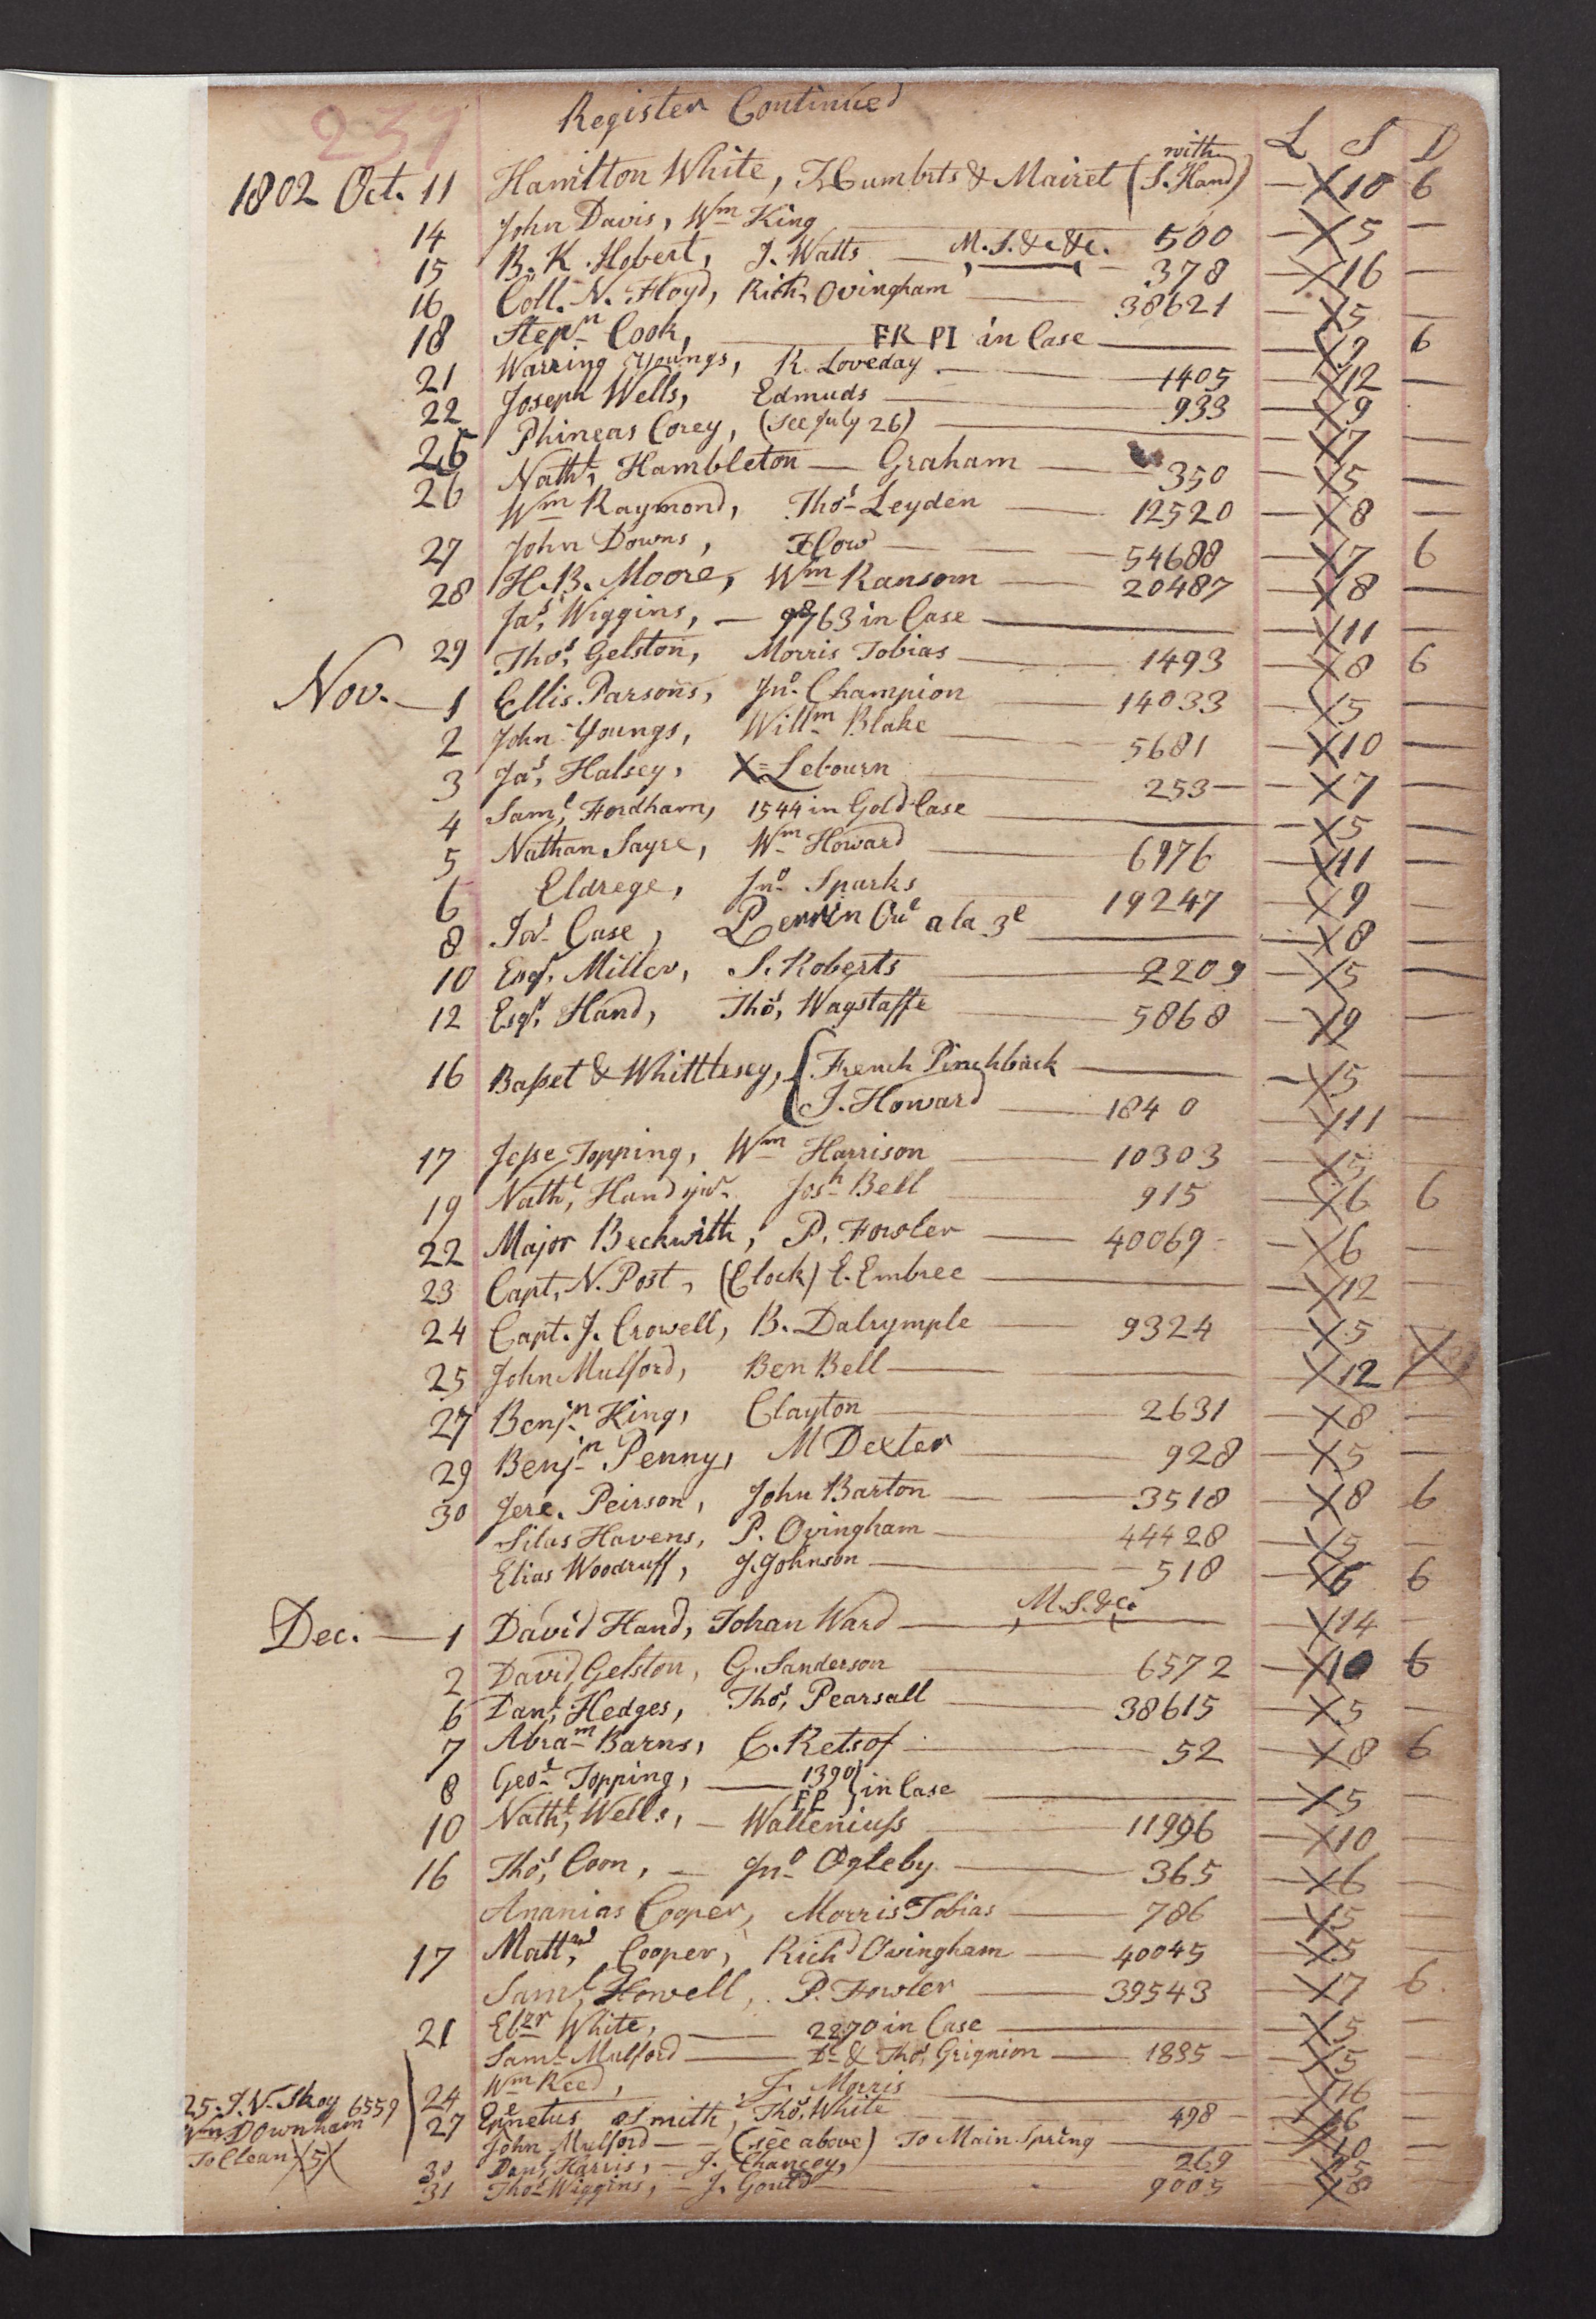 237 Register Continued L S D
1802 Oct. 11 Hamilton White, Humbrts & Mairet (with S. Hand) — X10 6
14 John Davis, Wm King 500 — X5 —
15 B. K. Hobert, J. Watts — M.S. &c &c. — 378 — X16 —
16 Coll. N. Floyd, Rich, Ovingham — 38621 — X5 —
18 Stepn Cook, — FR PI in Case — X9 6
21 Warring Youngs, R. Loveday — 1405 — X12 —
22 Joseph Wells, Edmuds — 933 — X9
25 Phineas Corey, (See July 26) — X7 —
26 Nathl, Hambleton — Graham — 350 — X5 —
Wm Raymond, Thos Leyden — 12520 — X8 —
27 John Downs, Flow — 54688 — X7 6
28 H. B. Moore, Wm Ransom — 20487 — X8 —
Jas, Wiggins, — 9763 in Case — X11 —
29 Thos, Gelston, Morris Tobias — 1493 — X8 6
Nov. — 1 Ellis Parsons, Jno Champion — 14033 — X5 —
2 John Youngs, Willm Blake — 5681 — X10 —
3 Jas, Halsey, X= Lebourn 253 — X7 —
4 Saml, Fordham, 1544 in Gold Case — X5 —
5 Nathan Sayre, Wm Howard — 6976 — X11 —
6 Eldrege, Jno Sparks 19247 — X9 —
8 Case, a la 3e — X8 —
10 Esqr. Miller, S. Roberts — 2209 — X5 —
12 Esqr, Hand, Thos, Wagstaffe — 5868 — X9 —
16 Baſset & Whittlesey, { French Pinchback — X5 —
J. Howard — 1840 — X11 —
17 Jeſse Topping, Wm Harrison — 10303 — X5 —
19 Nathl, Hand junr. Josh Bell — 915 — X6 6
22 Major Beckwith, P. Fowler — 40069 — X6 —
23 Capt, N. Post, (Clock) E. Embree — X12 —
24 Capt. J. Crowell, B. Dalrymple — 9324 — X5
25 John Mulford, Ben Bell — X12
27 Benjn King, Clayton — 2631 — X8 —
29 Benjn Penny, M Dexter — 928 — X5 —
30 Jere. Peirson, John Barton — 3518 — X8 6
Silas Havens, P. Ovingham — 44428 — X5 —
Elias Woodruff, J. Johnson — 518 — X6 6
Dec. — 1 David Hand, Johan Ward — M.S. &c. — X14 —
2 David Gelston, G. Sanderson — 6572 — X10 6
6 Danl, Hedges, Thos, Pearsall — 38615 — X5 —
7 Abram Barns, C. Retsof — 52 — X8 6
8 Geoe Topping, — 1390 FP } in Case — X5 —
10 Nathl, Wells, — Walleniuſs — 11996 — X10 —
16 Thos, Coon, — Jno Ogleby — 365 — X6 —
Ananias Cooper, Morris Tobias — 786 — X5 —
17 Mattw, Cooper, Richd Ovingham — 40045 — X5 —
Saml, Howell, P. Fowler — 39543 — X7 6.
21 Ebzr White, — 2270 in Case — X5 —
Saml Mulford — Dl & Thos, Grignion — 1835 — X5 —
24 Wm Reed, J. Morris — X16 —
25. J. V. Skoy 6559
Wm Downham
To Clean X5X
27 Epnetus Smith, Thos, White — 498 — X6 —
John Mulford — (see above) To Main Spring — X10 —
30 Danl, Harris, — J. Chancey, — 269 — X5
31 Thos Wiggins, — J. Gould — 9005 — X8